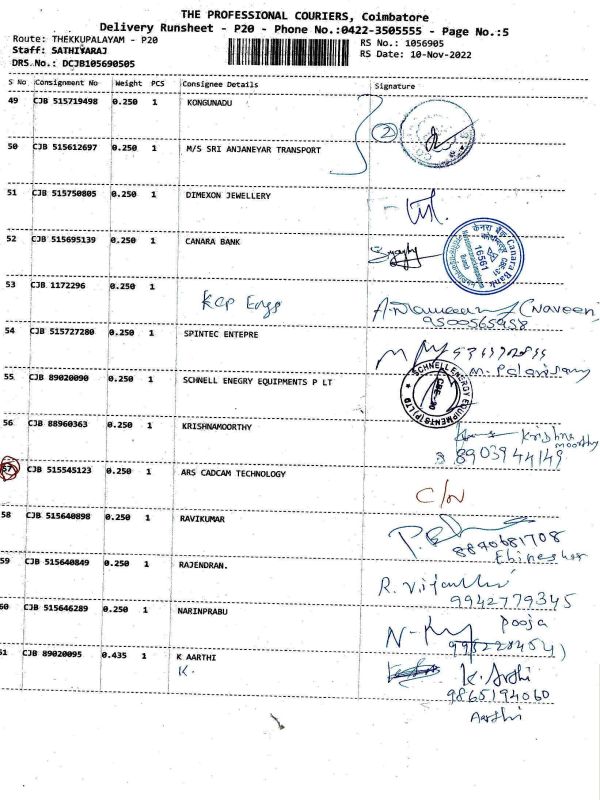 THE PROFESSIONAL COURIERS, Coimbatore
Delivery Runsheet - P20 - Phone No.:0422-3505555 - Page No.:5
Route: THEKKUPALAYAM - P20
RS No.: 1056905
Staff: SATHIYARAJ
RS Date: 10-Nov-2022
DRS.No.: DCJB105690505
S No Consignment No Weight PCS Consignee Details Signature
49 CJB 515719498 0.250 1 KONGUNADU
2
50 CJB 515612697 0.250 1 M/S SRI ANJANEYAR TRANSPORT
51 CJB 515750805 0.250 1 DIMEXON JEWELLERY
52 CJB 515695139 0.250 1 CANARA BANK
केनरा बैंक Canara Bank
16561
53 CJB 1172296 0.250 1
KCP Engg
(Naveen)
9500565958
54 CJB 515727280 0.250 1 SPINTEC ENTEPRE
M. Palanisamy
55 CJB 89020090 0.250 1 SCHNELL ENEGRY EQUIPMENTS P LT
SCHNELL ENERGY EQUIPMENTS (P) LTD
56 CJB 88960363 0.250 1 KRISHNAMOORTHY
Krishna
moorthy
8903944149
57 CJB 515545123 0.250 1 ARS CADCAM TECHNOLOGY
C/N
58 CJB 515640898 0.250 1 RAVIKUMAR
8840681708
59 CJB 515640849 0.250 1 RAJENDRAN.
9942779345
60 CJB 515646289 0.250 1 NARINPRABU
Pooja
51 CJB 89020095 0.435 1 K AARTHI
K.
K. Arthi
9865194060
Aarthi